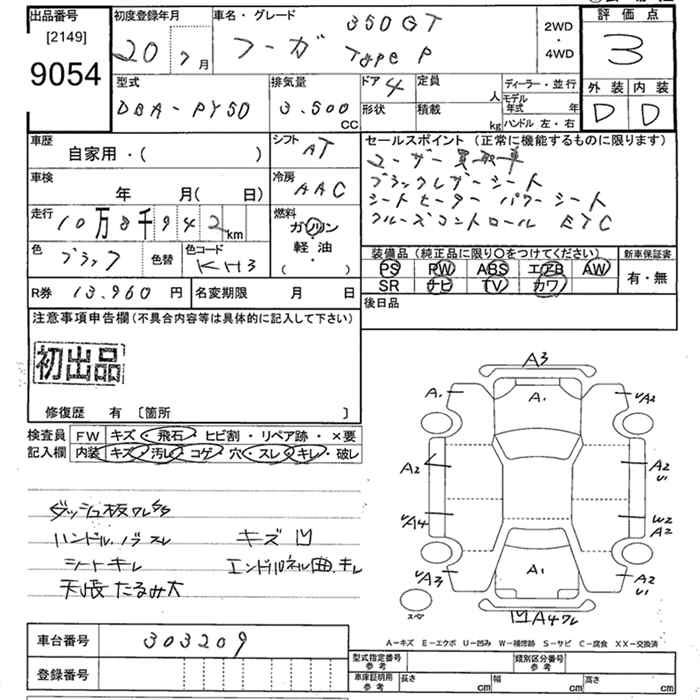 出品番号
[2149]
9054
初度登録年月
20 7 月
車名・グレード
フーガ
350GT
Type P
2WD
・
4WD
評価点
3
型式
DBA-PY50
排気量
3.500
CC
ドア 4
定員
人
形状
積載
kg
ディーラー・並行
モデル年式 年
ハンドル 左・右
外装 内装
D D
車歴
自家用・( )
シフト
AT
車検
年 月( 日)
冷房
AAC
走行
10万8千942km
燃料
ガソリン
軽油
・
( )
色
ブラック
色替
色コード
KH3
R券 13.960 円
名変期限 月 日
セールスポイント (正常に機能するものに限ります)
ユーザー買取車
ブラックレザーシート
シートヒーター パワーシート
クルーズコントロール ETC
装備品(純正品に限り○をつけてください)
新車保証書
PS PW ABS エアB AW
SR ナビ TV カワ
有・無
後日品
注意事項申告欄(不具合内容等は具体的に記入して下さい)
初出品
修復歴 有 〔箇所 〕
検査員
記入欄
FW キズ・飛石・ヒビ割・リペア跡・×要
内装 キズ・汚レ・コゲ・穴・スレ・キレ・破レ
ダッシュ板ワレ
ハンドル.ノブスレ
キズ凹
シートキレ
エンドパネル曲.キレ
天張たるみ大
A3
A1
A1
A2
A2
A2
U1
A4
W2
A2
A3
A1
A2
U1
スペア
凹A4ワレ
A-キズ E-エクボ U-凹み W-補修跡 S-サビ C-腐食 XX-交換済
車台番号
303209
登録番号
型式指定番号
参考
類別区分番号
参考
車庫証明用
参考
長さ cm
幅 cm
高さ cm